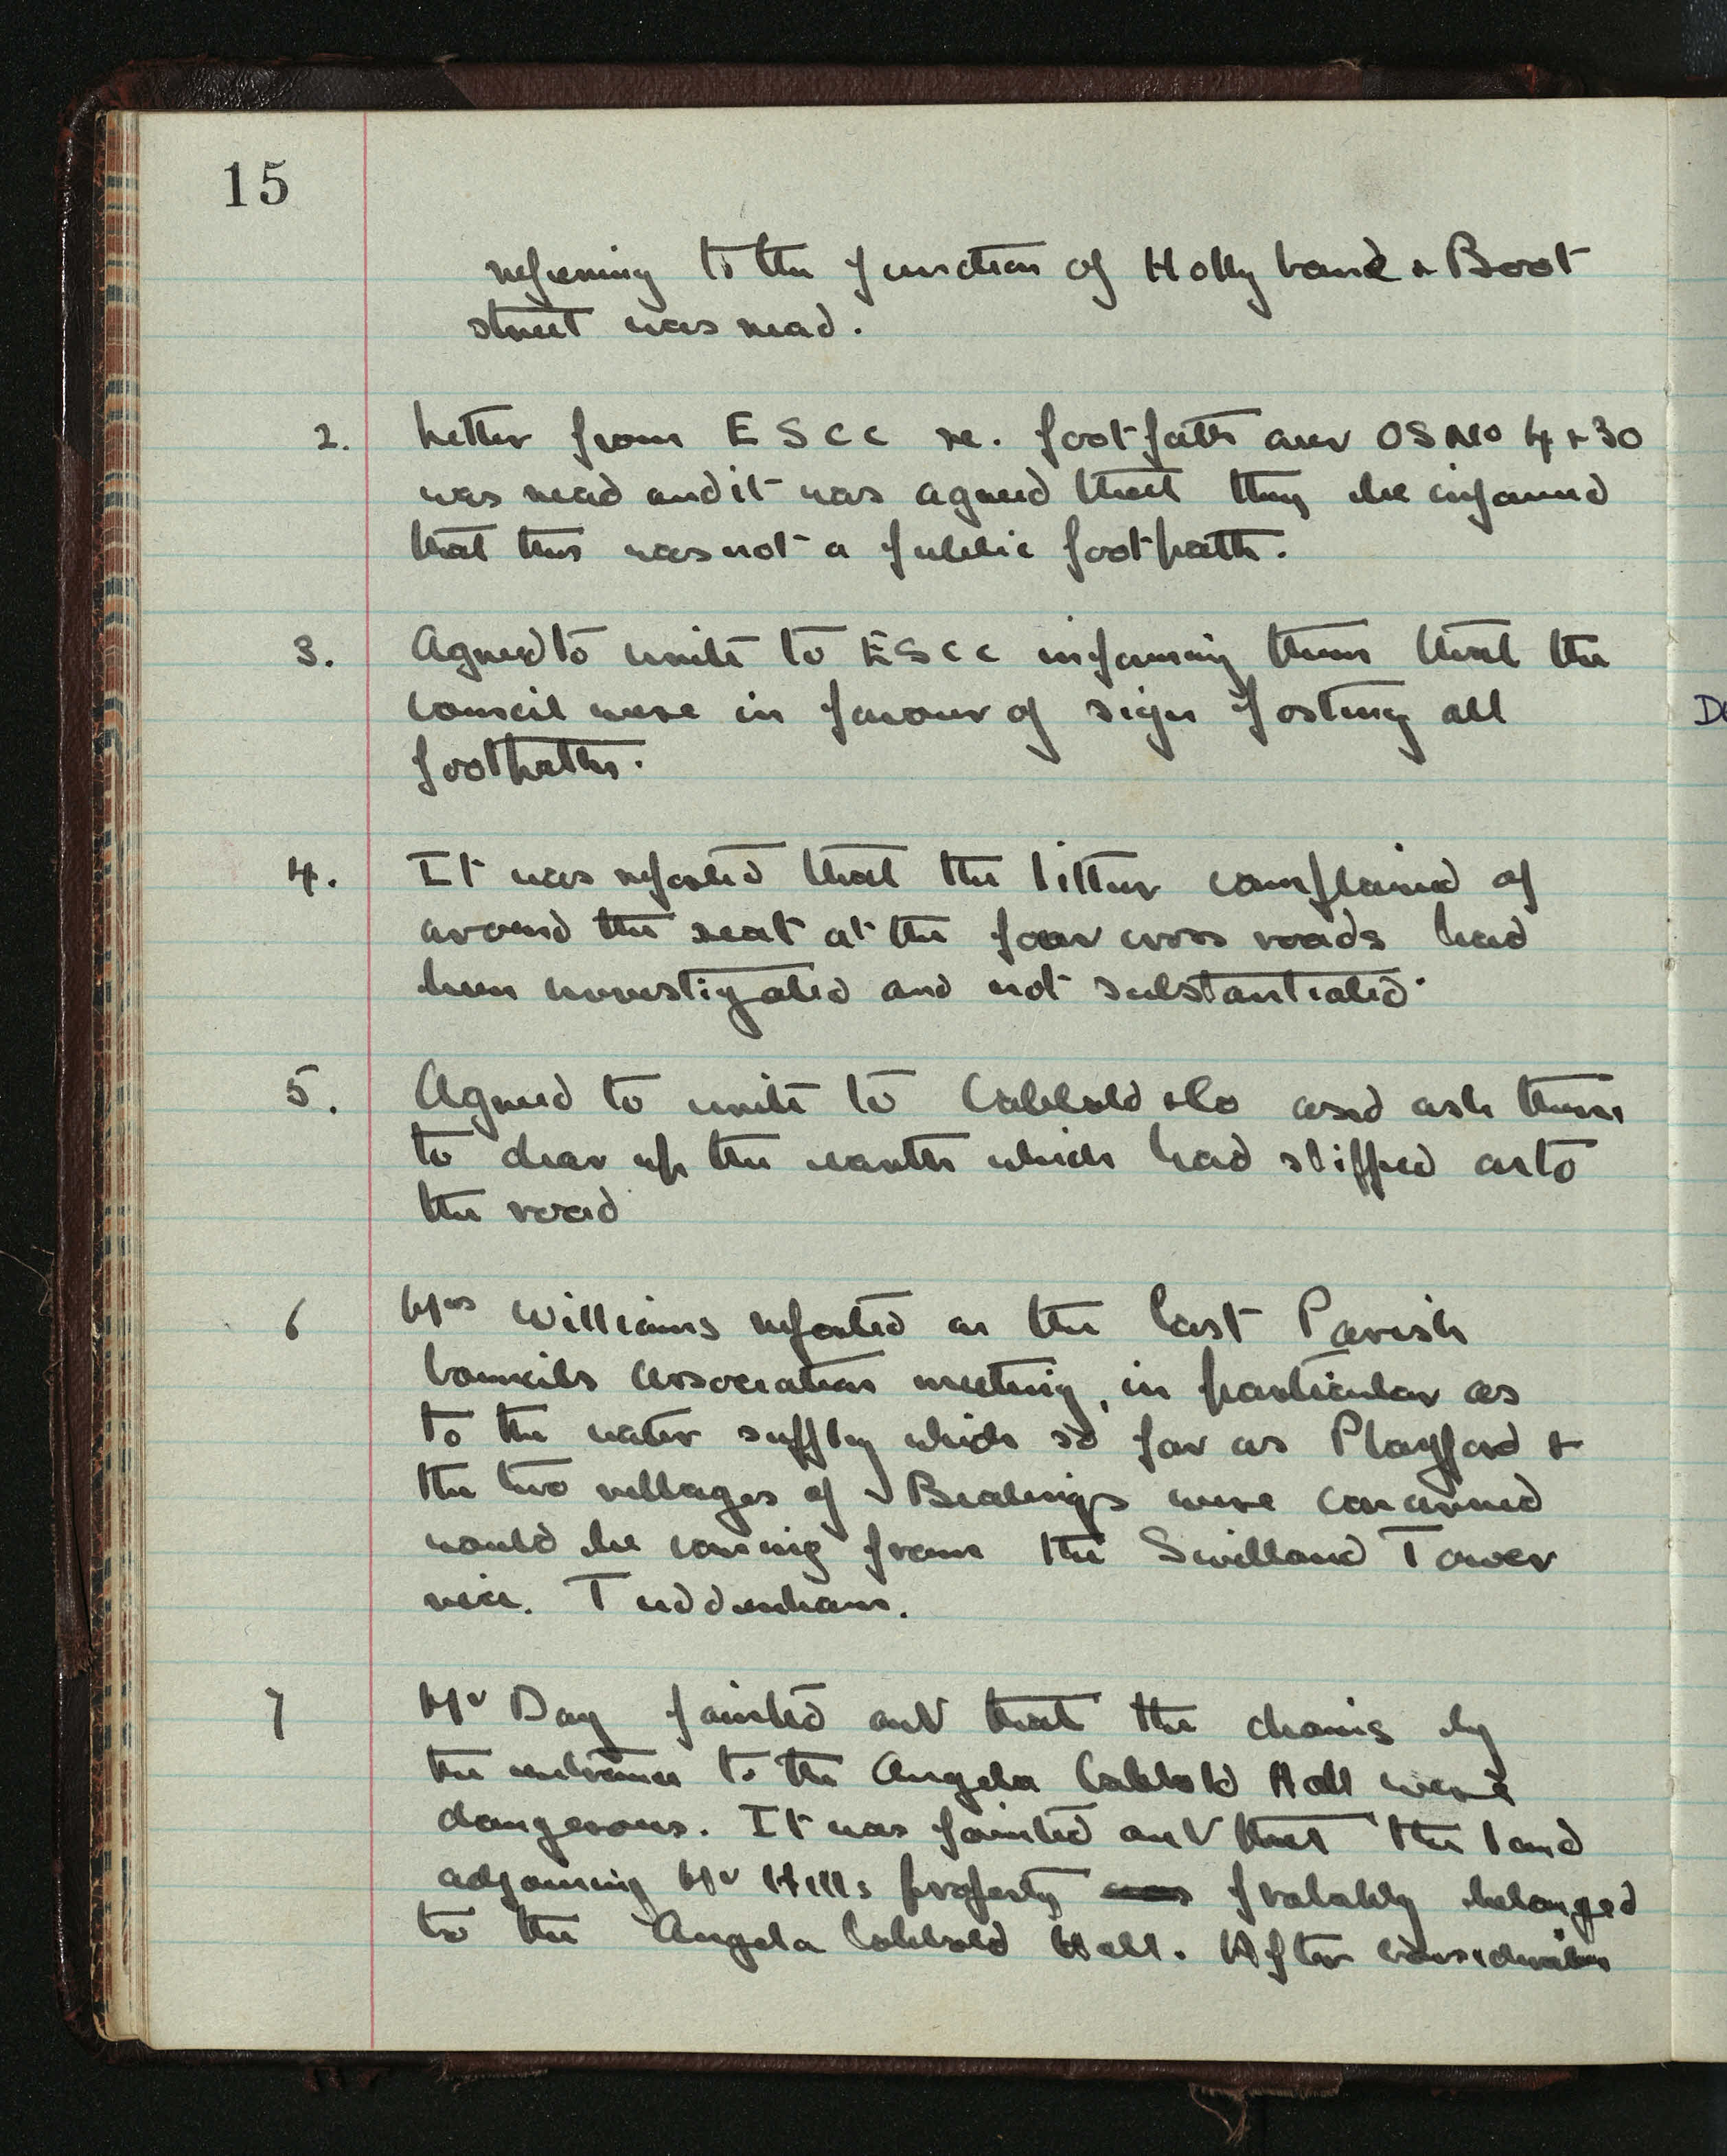 15
referring to the junction of Holly Lane & Boot
street was read.
2. Letter from ESCC re. footpath over OS No 4 & 30
was read and it was agreed that they be informed
that this was not a public footpath.
3. Agreed to write to ESCC informing them that the
Council were in favour of sign posting all
footpaths.
4. It was reported that the litter complained of
around the seat at the four cross roads had
been investigated and not substantiated.
5. Agreed to write to Cobbold & Co and ask them
to clear up the earth which had slipped onto
the road
6 Mrs Williams reported on the last Parish
Councils Association meeting, in particular as
to the water supply which so far as Playford &
the two villages of Bealings were concerned
would be coming from the Swilland Tower
via. Tuddenham.
7 Mr Day pointed out that the chains by
the entrance to the Angela Cobbold Hall were
dangerous. It was pointed out that the land
adjoining Mr Hills property probably belonged
to the Angela Cobbold Hall. After consideration